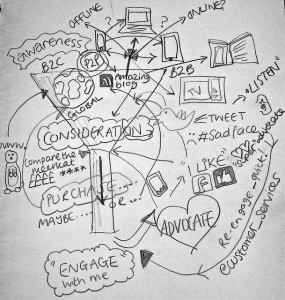 OFFLINE
ONLINE?
?
Awareness
B2C
P2P
Amazing
blog
B2B
GLOBAL
"LISTEN"
CONSIDERATION
TWEET
#sadface
Compare the
meerkat
££££ ****
"LIKE"
PURCHASE...
MAYBE....
ADVOCATE
Re-engage - quick!
@customer_services
"ENGAGE"
with me